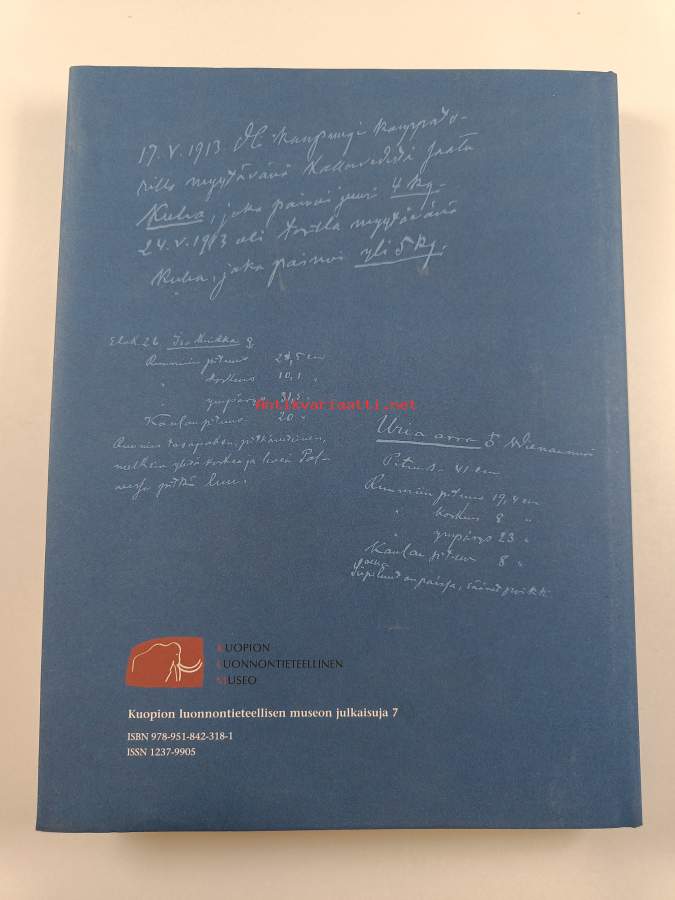 17.V.1913. Oli kaupungi kauppato-
rilla myytävänä Kallavedestä saatu
Kuha, joka painoi juuri 4 kg.
24.V.1913 oli torilla myytävänä
Kuha, joka painoi yli 5 kg.
Elok 26. Iso Kuikka
Ruumiin pituus 28,5 cm
" korkeus 10,1 "
" ympärys
Kaulan pituus 20 "
Ruumis tasapaksu, pitkänetinen,
melkein yhtä korkea ja leveä
pitkä luu.
Antikvariaatti.net
Uria arra
Pituus 41 cm
Ruumiin pituus 19,4 cm
" korkeus 8 "
" ympärys 23 "
Kaulan pituus 8 "
on paissa,
KUOPION
LUONNONTIETEELLINEN
MUSEO
Kuopion luonnontieteellisen museon julkaisuja 7
ISBN 978-951-842-318-1
ISSN 1237-9905